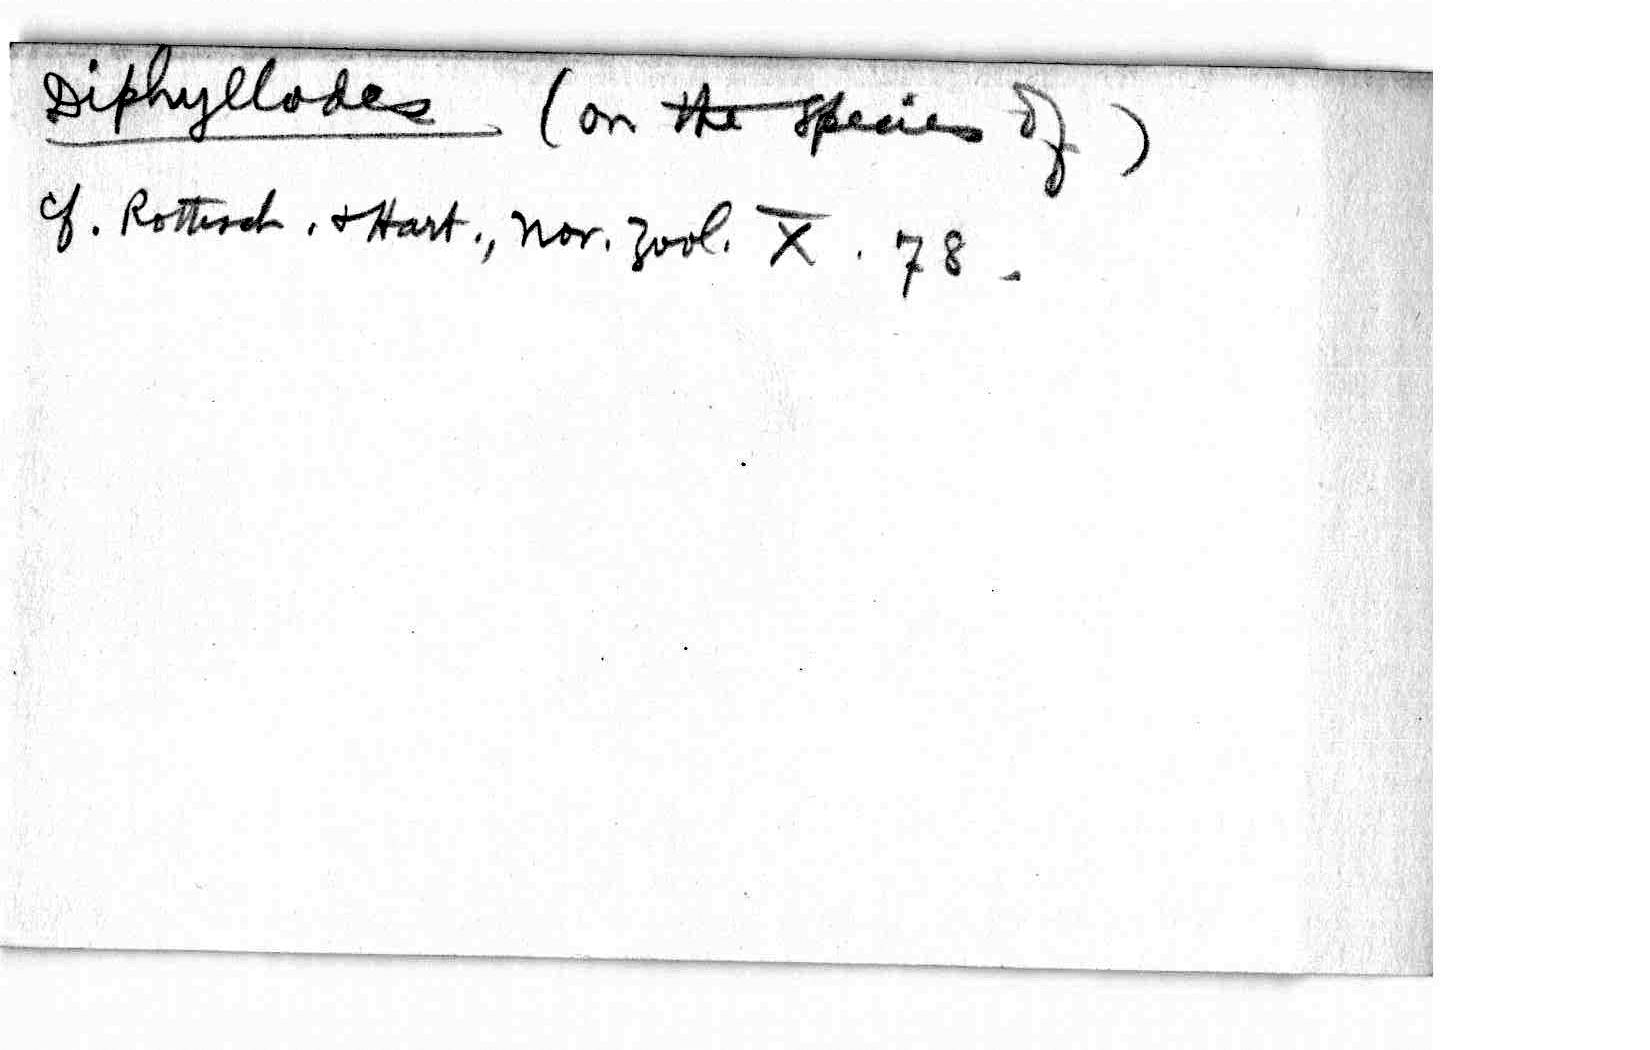 Diphyllodes (on the species of)
cf. Rothsch. & Hart., Nov. Zool. X. 78.